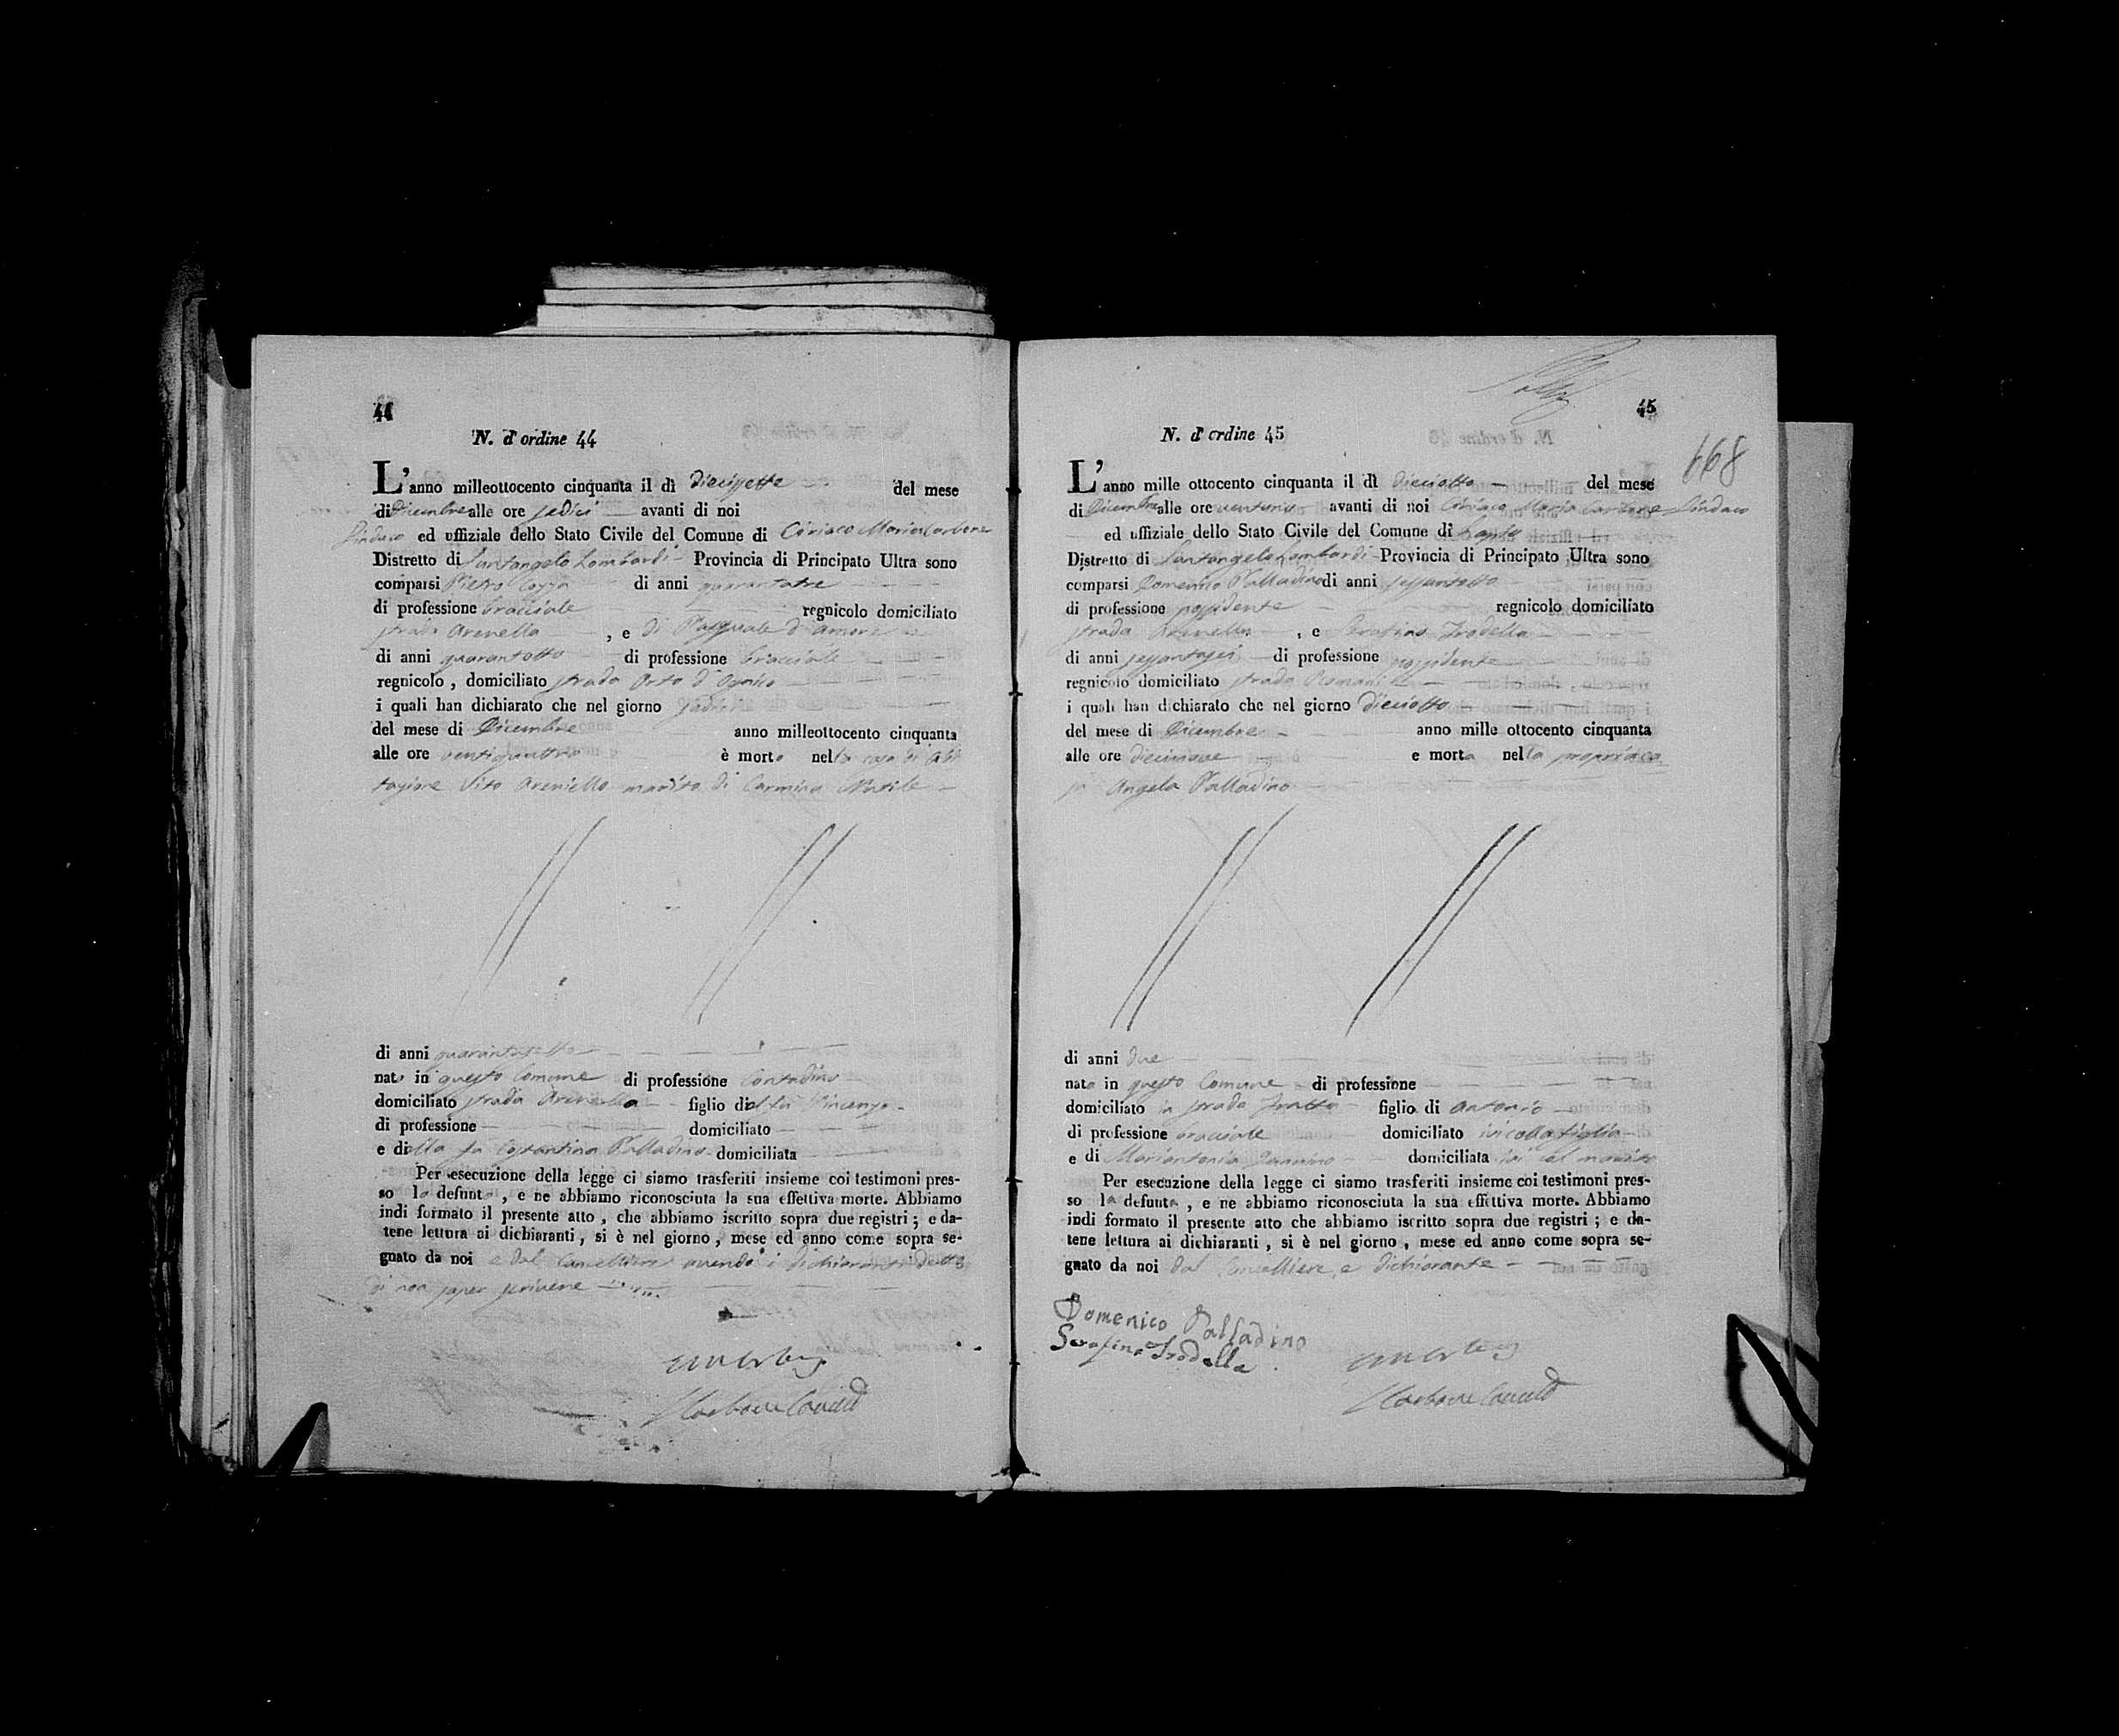 44
N. d'ordine 44
L'anno milleottocento cinquanta il dì diecisette del mese
di Dicembre alle ore sedici avanti di noi
Sindaco ed uffiziale dello Stato Civile del Comune di Ciriaco Maria Carbone
Distretto di Santangelo Lombardi Provincia di Principato Ultra sono
comparsi Pietro Cozza di anni quarantatre
di professione bracciale regnicolo domiciliato
strada Arenella , e di Pasquale d'Amore
di anni quarantotto di professione bracciale
regnicolo , domiciliato strada Orto d'
i quali han dichiarato che nel giorno sedici
del mese di Dicembre anno milleottocento cinquanta
alle ore ventiquattro è morto nella casa di abi
tazione Vito Areniello marito di Carmina
di anni
nato in questo Comune di professione Contadino
domiciliato strada Arenella figlio del fu Vincenzo
di professione domiciliato
e della fu Costantina Palladino domiciliata
Per esecuzione della legge ci siamo trasferiti insieme coi testimoni pres-
so lo defunto , e ne abbiamo riconosciuta la sua effettiva morte. Abbiamo
indi formato il presente atto , che abbiamo iscritto sopra due registri ; e da-
tene lettura ai dichiaranti , si è nel giorno , mese ed anno come sopra se-
gnato da noi e dal Cancelliere avendo i dichiaranti detto
di non saper scrivere
Carbone Cancell
45
668
N. d'ordine 45
L'anno mille ottocento cinquanta il dì dieciotto del mese
di Dicembre alle ore ventuno avanti di noi Ciriaco Maria Carbone Sindaco
ed uffiziale dello Stato Civile del Comune di
Distretto di Santangelo Lombardi Provincia di Principato Ultra sono
comparsi Domenico Palladino di anni sessantotto
di professione possidente regnicolo domiciliato
strada Arenella , e Serafino Frodella
di anni sessantasei di professione possidente
regnicolo domiciliato strada
i quali han dichiarato che nel giorno dieciotto
del mese di Dicembre anno mille ottocento cinquanta
alle ore diecinove e morta nella propria ca
sa Angela Palladino
di anni due
nata in questo Comune di professione
domiciliato in strada figlia di Antonio
di professione bracciale domiciliato ivi colla figlia
e di Mariantonia domiciliata ivi col marito
Per esecuzione della legge ci siamo trasferiti insieme coi testimoni pres-
so la defunta , e ne abbiamo riconosciuta la sua effettiva morte. Abbiamo
indi formato il presente atto che abbiamo iscritto sopra due registri ; e da-
tene lettura ai dichiaranti , si è nel giorno , mese ed anno come sopra se-
gnato da noi dal Cancelliere, e dichiarante
Domenico Palladino
Serafino Frodella
Carbone Cancell